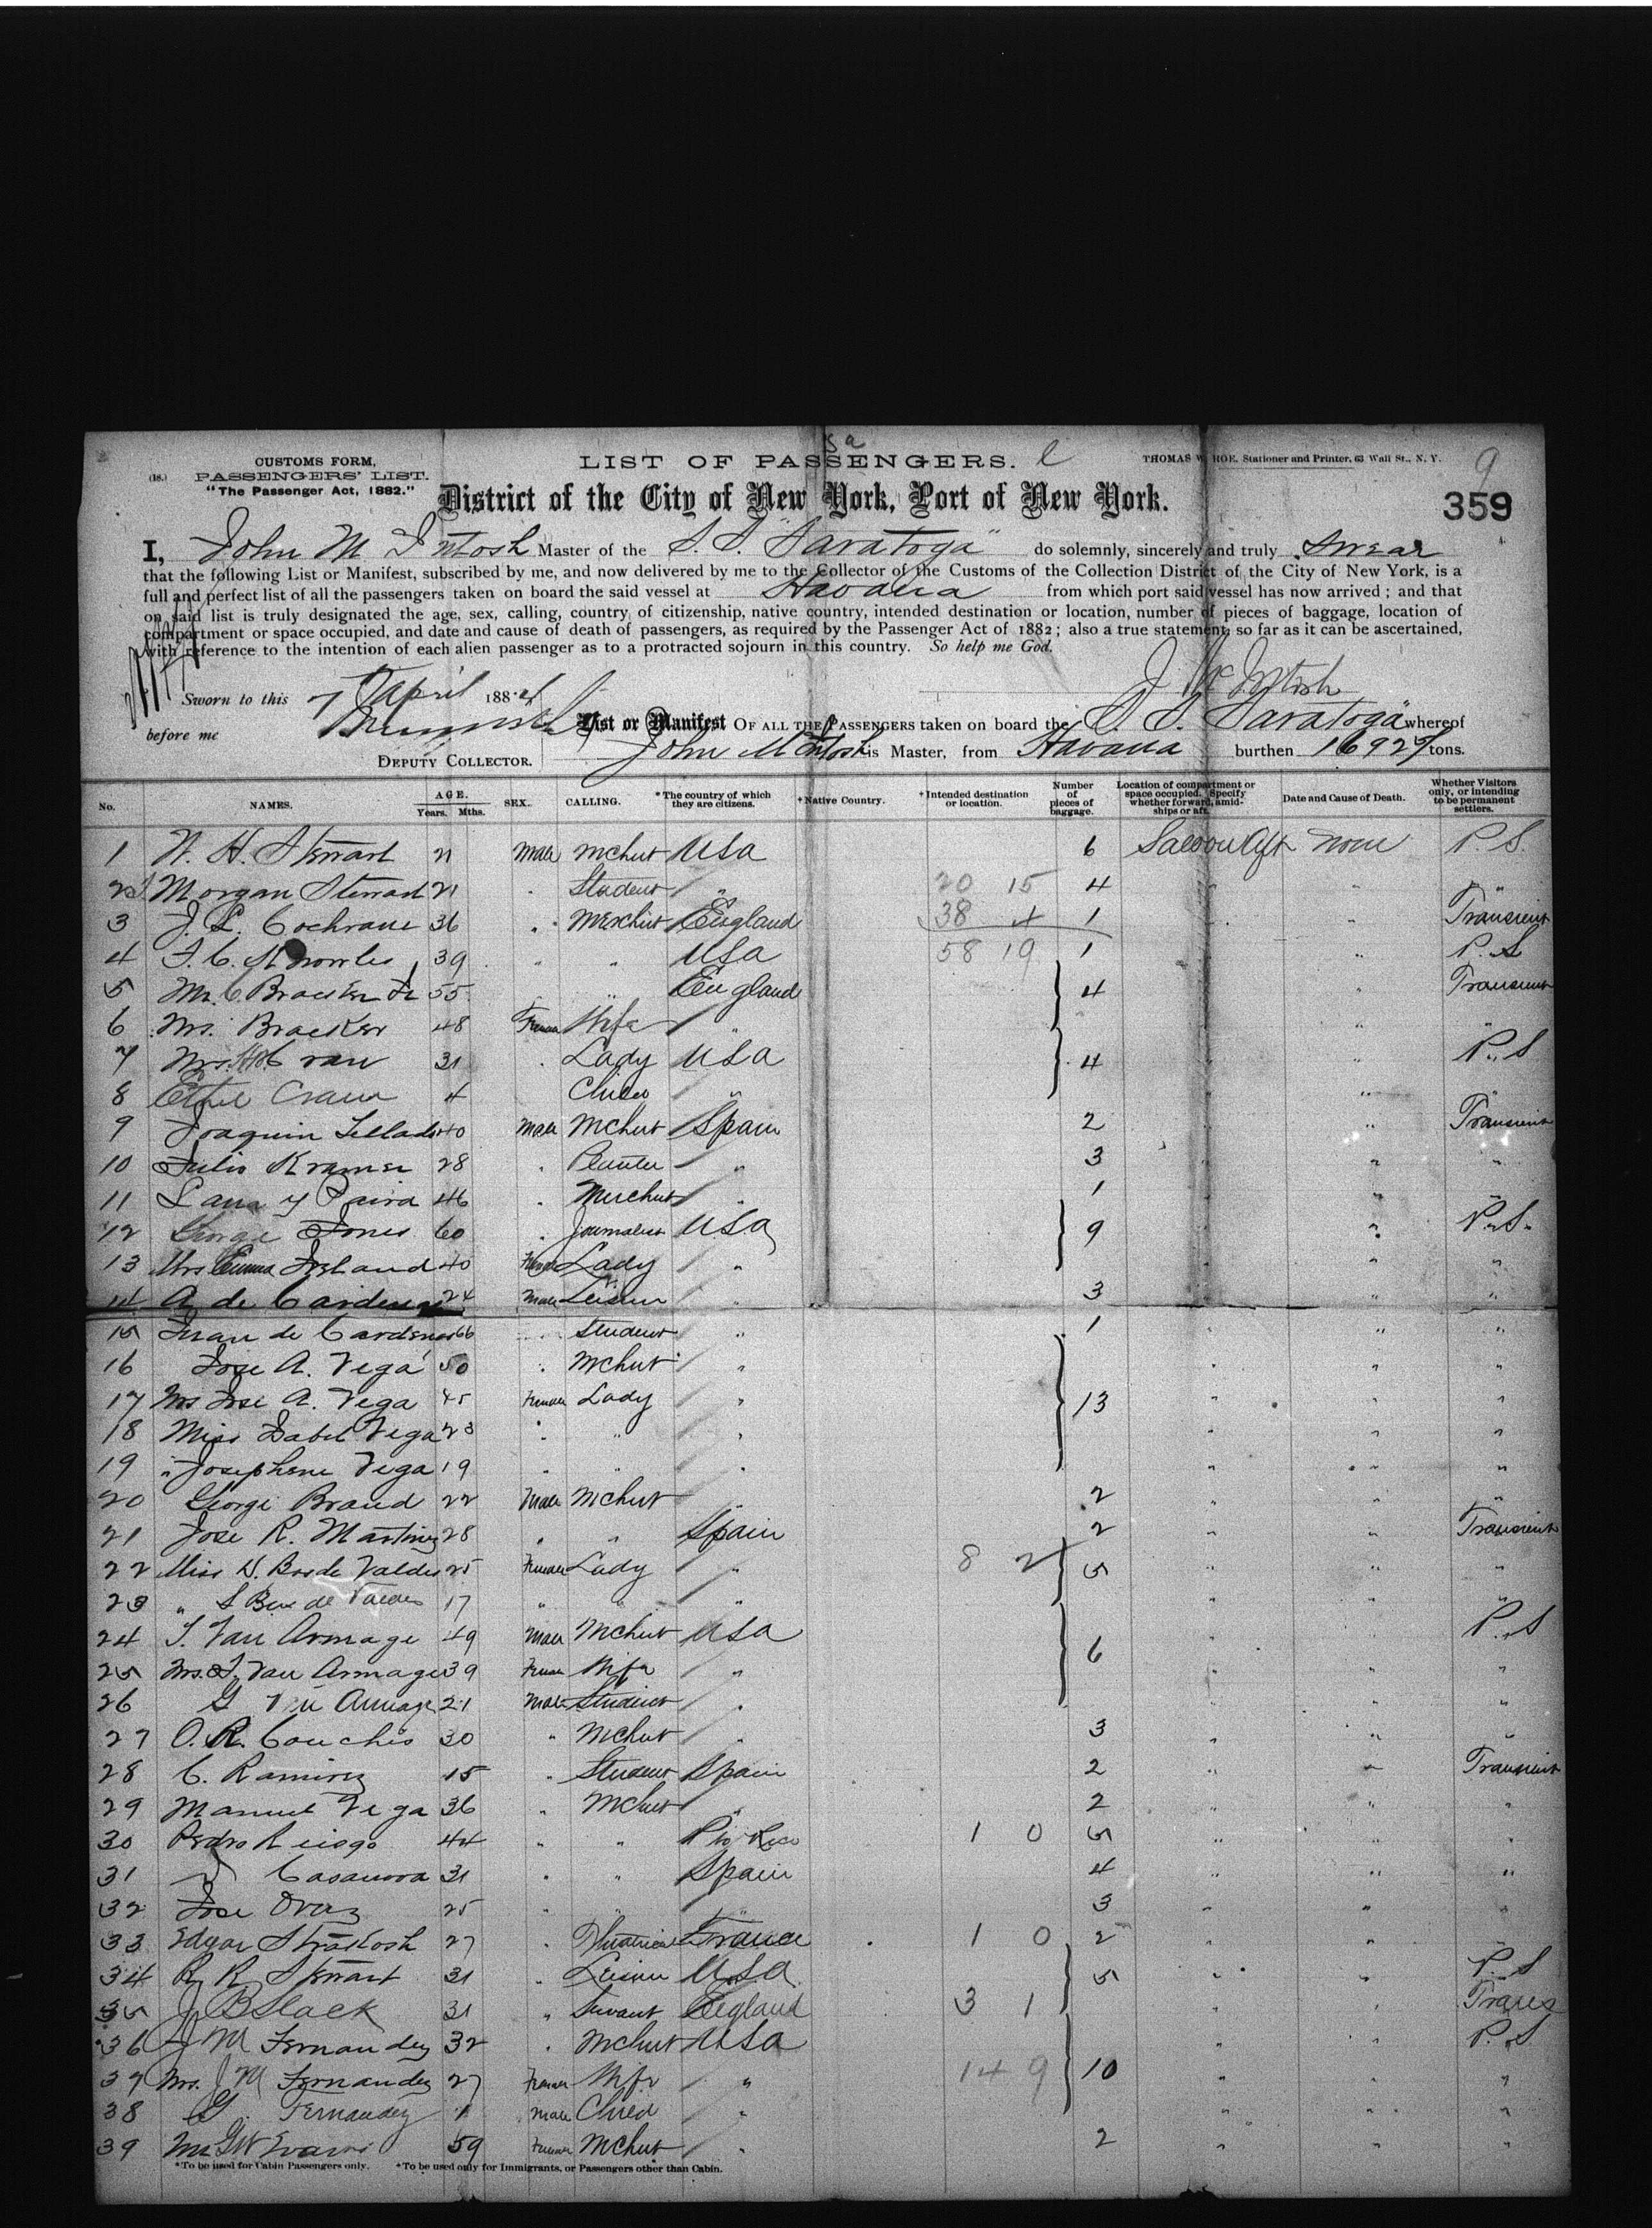 sa
CUSTOMS FORM, LIST OF PASSENGERS. THOMAS W. ROE, Stationer and Printer, 63 Wall St., N. Y. 9
(18.) PASSENGERS' LIST.
"The Passenger Act, 1882."
District of the City of New York, Port of New York. 359
I, John McIntosh Master of the S.S. "Saratoga" do solemnly, sincerely and truly swear
that the following List or Manifest, subscribed by me, and now delivered by me to the Collector of the Customs of the Collection District of the City of New York, is a
full and perfect list of all the passengers taken on board the said vessel at Havana from which port said vessel has now arrived; and that
on said list is truly designated the age, sex, calling, country of citizenship, native country, intended destination or location, number of pieces of baggage, location of
compartment or space occupied, and date and cause of death of passengers, as required by the Passenger Act of 1882; also a true statement, so far as it can be ascertained,
with reference to the intention of each alien passenger as to a protracted sojourn in this country. So help me God.
J. McIntosh
Sworn to this 7 April 188
before me
List or Manifest OF ALL THE PASSENGERS taken on board the S.S. Saratoga whereof
DEPUTY COLLECTOR. John McIntosh is Master, from Havana burthen tons.
No. NAMES. AGE. Years. Mths. SEX. CALLING. *The country of which they are citizens. †Native Country. †Intended destination or location. Number of pieces of baggage. Location of compartment or space occupied. Specify whether forward, amidships or aft. Date and Cause of Death. Whether Visitors only, or intending to be permanent settlers.
1 W. H. Stewart 21 Male Mchnt USA 6 Saloon Aft None P.S.
2 Morgan Stewart 21 " Student " 20 15 4 " "
3 J. L. Cochrane 36 " Merchnt England 38 4 1 " Transient
4 F. C. Knowles 39 " " USA 58 19 1 " P.S
5 Mr. C. Braeker 55 " England 4 " Transient
6 Mrs. Braeker 48 Female Wife " " "
7 Mrs. Cran 31 " Lady USA 4 " " P.S
8 Ethel Cran 4 Child " " "
9 Joaquin 40 Male Mchnt Spain 2 " " Transient
10 Julio Kramer 28 " Planter " 3 " " "
11 46 " Merchnt " 1 " " "
12 George Jones 60 " Journalist USA 9 " " P.S.
13 Mrs Emma Ireland 40 Female Lady " " " "
14 A de Cardenas 24 Male Leisure " 3 " " "
15 Juan de Cardenas 66 " Student " 1 " " "
16 Jose A. Vega 50 " Mchnt " " " "
17 Mrs Jose A. Vega 45 Female Lady " 13 " " "
18 Miss Isabel Vega 23 " " " " " "
19 " Josephene Vega 19 " " " " " "
20 George Brand 22 Male Mchnt " 2 " " "
21 Jose R. Martinez 28 " " Spain 2 " " Transient
22 Miss Valdes 25 Female Lady " 8 2 5 " " "
23 " Valdes 17 " " " " " "
24 T. Van Armage 49 Male Mchnt USA 6 " " P.S
25 Mrs. T. Van Armage 39 Female Wife " " " "
26 G Van Armage 21 Male Student " " " "
27 O. R. Couchis 30 " Mchnt " 3 " " "
28 C. Ramirez 15 " Student Spain 2 " " Transient
29 Manuel Vega 36 " Mchnt " 2 " " "
30 Pedro 44 " " Pto Rico 1 0 5 " " "
31 Casanova 31 " " Spain 4 " " "
32 Jose 25 " " " 3 " " "
33 Edgar Strakosh 27 " Theatrical France 1 0 2 " " "
34 R. R. Stewart 31 " Leisure USA 5 " " P.S
35 J B Slack 31 " Servant England 3 1 " " Trans
36 J M Fernandez 32 " Mchnt USA " " P.S
37 Mrs. J M Fernandez 27 Female Wife " 14 9 10 " " "
38 G. Fernandez 1 Male Child " " " "
39 Evans 59 Female Mchnt " 2 " " "
*To be used for Cabin Passengers only. †To be used only for Immigrants, or Passengers other than Cabin.